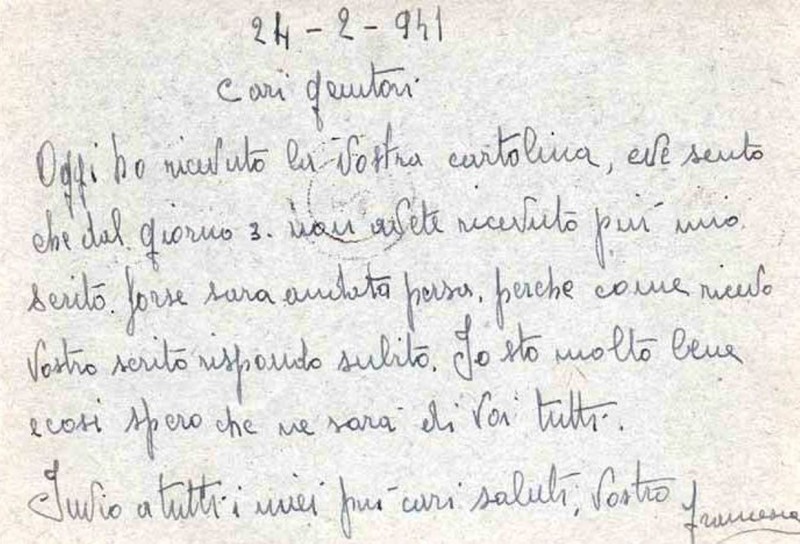 24 - 2 - 941
Cari genitori
Oggi ho ricevuto la Vostra cartolina, ove sento
che dal giorno 3. non avete ricevuto piu mio
scrito. forse sara andata persa, perche come ricevo
Vostro scrito rispondo subito. Io sto molto bene
e cosi spero che ne sara di Voi tutti.
Invio a tutti i miei più cari saluti, Vostro